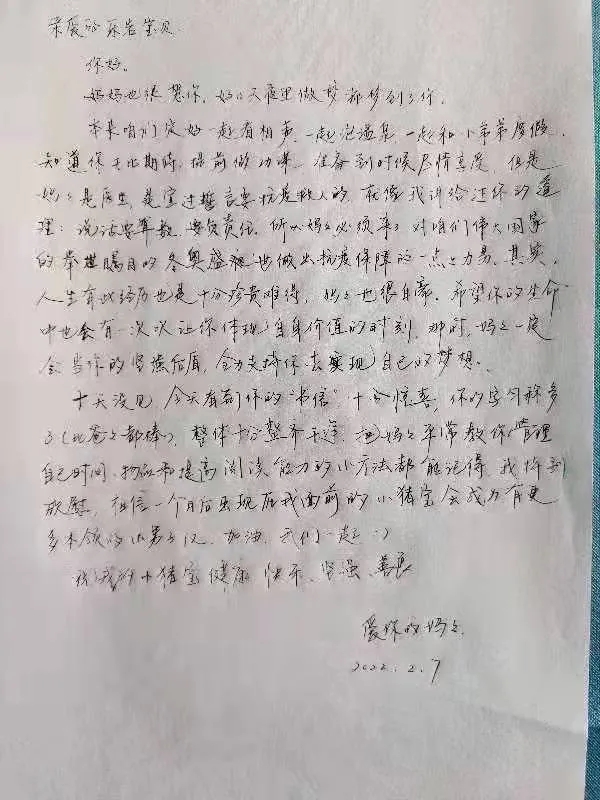 亲爱的乐岩宝贝
你好。
妈妈也很想你,妈妈天夜里做梦都梦到了你。
本来咱们定好一起看相声,一起泡温泉,一起和小弟弟度假,
知道你无比期待,提前做功课,准备到时候尽情享受,但是
妈妈是医生,是宣过誓言要抗疫救人的,就像我讲给过你的道
理:说话要算数,要负责任,所以妈妈必须来,对咱们伟大国家
的举世瞩目的冬奥盛况也做出抗疫保障的一点点力量。其实,
人生有此经历也是十分珍贵难得,妈妈也很自豪。希望你的生命
中也会有一次次让你体现自身价值的时刻,那时,妈妈一定
会当你的坚强后盾,全力支持你去实现自己的梦想。
十天没见,今天看到你的“书信”十分惊喜,你的字习称多
了(比爸爸都棒),整体十分整齐
自己时间、物品和提高阅读能力的小方法都能记得,我感到
欣慰,相信一个月后出现在我面前的小猪宝会成为有更
多本领的小男子汉,加油,我们一起:)
祝我的小猪宝健康、快乐、坚强、善良
爱你的妈妈
2022.2.7